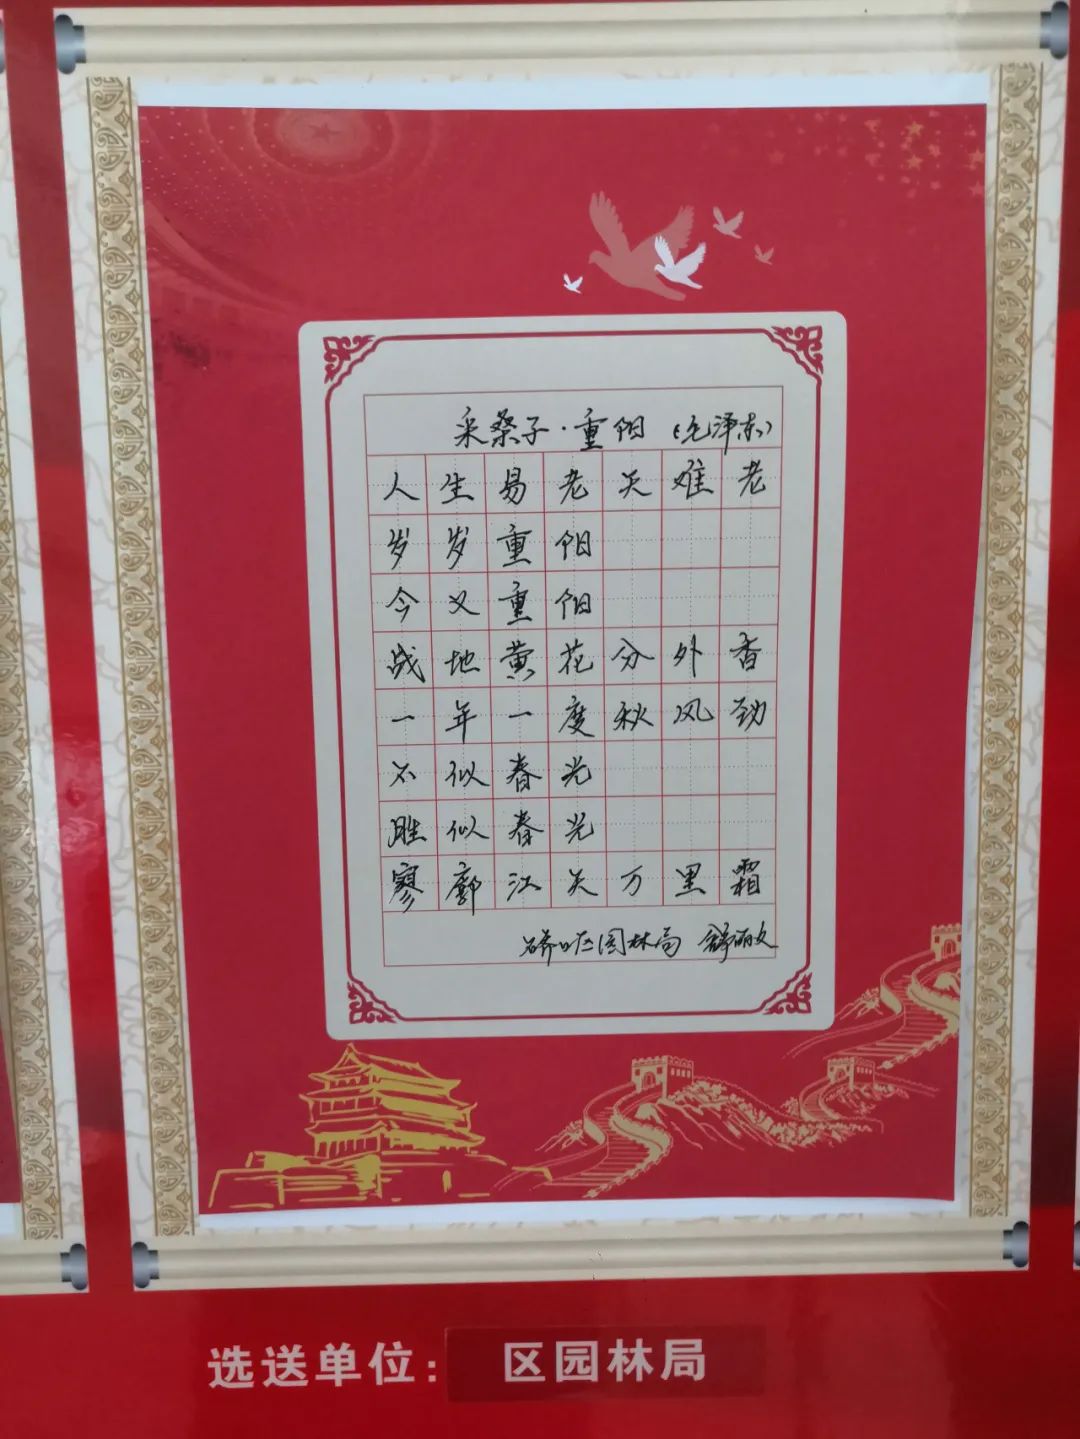 采桑子·重阳（毛泽东）
人生易老天难老
岁岁重阳
今又重阳
战地黄花分外香
一年一度秋风劲
不似春光
胜似春光
寥廓江天万里霜
硚口区园林局 舒丽文
选送单位：区园林局